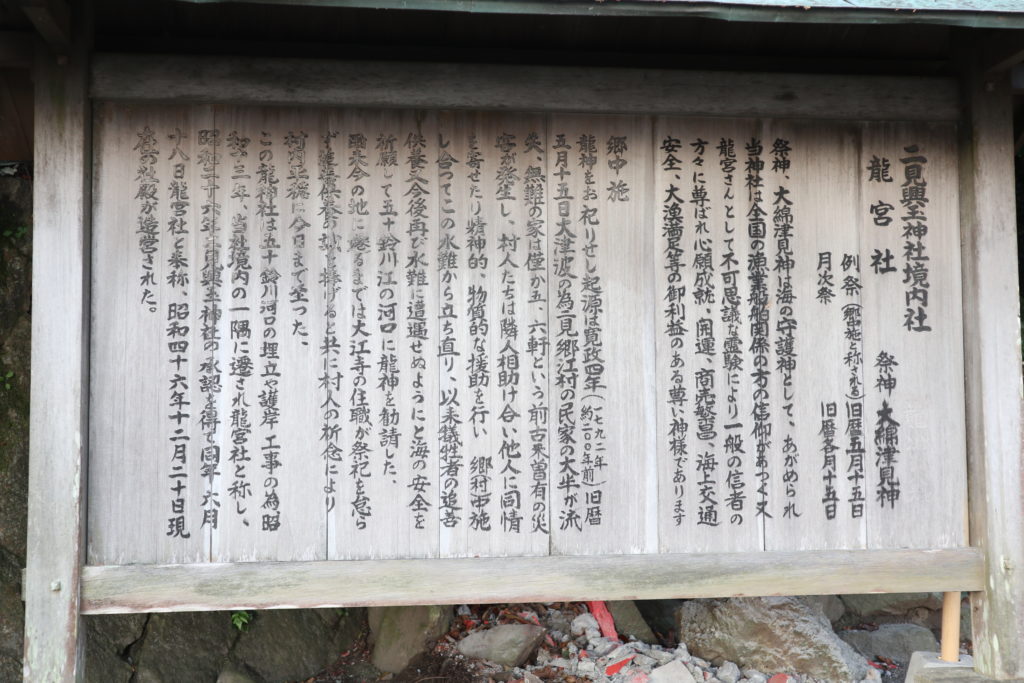 二見興玉神社境内社
龍宮社　祭神 大綿津見神
例祭（郷中施と称される）旧暦五月十五日
月次祭　旧暦各月十五日
祭神、大綿津見神は海の守護神として、あがめられ
当神社は全国の漁業船舶関係の方の信仰があつく又
龍宮さんとして不可思議な霊験により一般の信者の
方々に尊ばれ心願成就、開運、商売繁昌、海上交通
安全、大漁満足等の御利益のある尊い神様であります
郷中施
龍神をお祀りせし起源は寛政四年（一七九二年 約二〇〇年前）旧暦
五月十五日大津波の為二見郷江村の民家の大半が流
失、無難の家は僅か五、六軒という前古未曽有の災
害が発生し、村人たちは隣人相助け合い他人に同情
を寄せたり精神的、物質的な援助を行い　郷村中施
し合つてこの水難から立ち直り、以来犠牲者の追善
供養又今後再び水難に遭遇せぬようにと海の安全を
祈願して五十鈴川江の河口に龍神を勧請した、
爾来今の地に遷るまでは大江寺の住職が祭祀を怠ら
ず追善供養の誠を捧げると共に村人の祈念により
村内平穏に今日まで至った、
この龍神社は五十鈴川河口の埋立や護岸工事の為昭
和十三年、当社境内の一隅に遷され龍宮社と称し、
昭和二十六年二見興玉神社の承認を得て同年六月
十八日龍宮社と来称、昭和四十六年十二月二十日現
在の社殿が造営された。